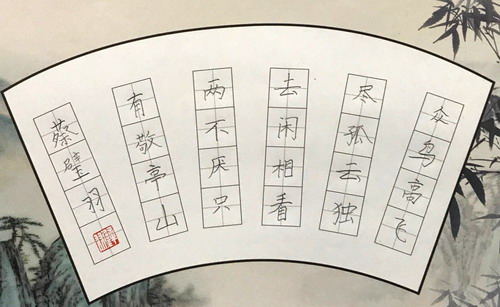 众鸟高飞
尽孤云独
去闲相看
两不厌只
有敬亭山
蔡璧羽